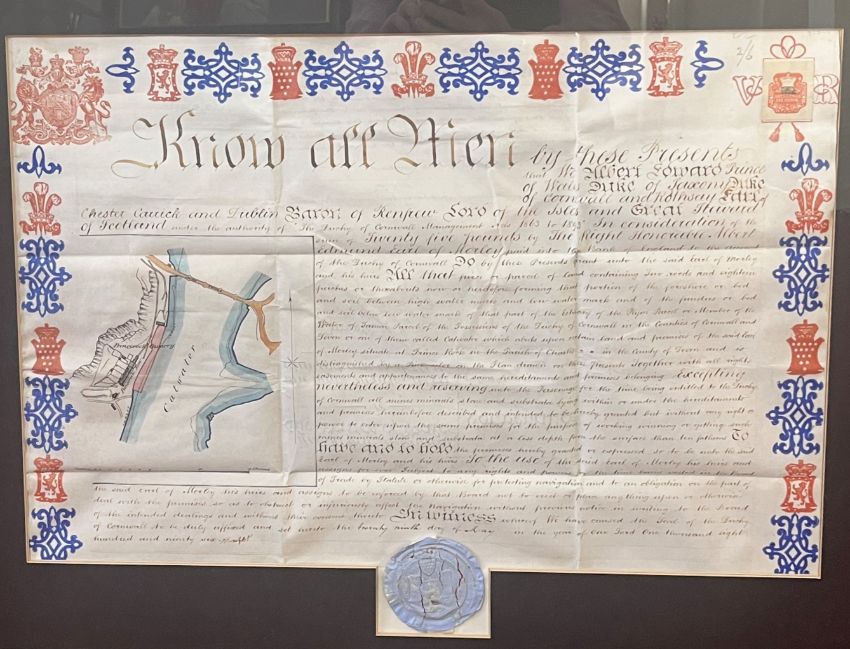 2/6
V R
Know all Men by these Presents
that We Albert Edward Prince
of Wales Duke of Saxony Duke
of Cornwall and Rothsay Earl of
Chester Carrick and Dublin Baron of Renfrew Lord of the Isles and Great Steward
of Scotland under the authority of "The Duchy of Cornwall Management Acts 1863 to 1893" In consideration of the
sum of Twenty five pounds by The Right Honorable Albert
Edmund Earl of Morley paid into the Bank of England to the account
of the Duchy of Cornwall Do by these Presents grant unto the said Earl of Morley
and his heirs All that piece or parcel of Land containing two roods and eighteen
perches or thereabouts now or heretofore forming that portion of the foreshore or bed
and soil between high water mark and low water mark and of the fundus or bed
and soil below low water mark of that part of the Estuary of the River or Member of the
Water of Tamar Parcel of the Possessions of the Duchy of Cornwall in the Counties of Cornwall and
Devon or one of them called Catwater which abuts upon certain Land and premises of the said Earl
of Morley situate at Prince Rock in the Parish of Charles in the County of Devon and so
distinguished by a Red color on the Plan drawn on these presents Together with all rights
easements and appurtenances to the same hereditaments and premises belonging Excepting
nevertheless and reserving unto the Personage for the time being entitled to the Duchy
of Cornwall all mines minerals stone and substrata lying within or under the hereditaments
and premises hereinbefore described and intended to be hereby granted but without any right or
power to enter upon the same premises for the purpose of working winning or getting such
mines minerals stone and substrata at a less depth from the surface than ten fathoms To
have and to hold the premises hereby granted or expressed so to be unto the said
Earl of Morley and his heirs To the use of the said Earl of Morley his heirs and
assigns for ever Subject to any rights and powers for the time being vested in the Board
of Trade by Statute or otherwise for protecting navigation and to an obligation on the part of
the said Earl of Morley his heirs and assigns to be enforced by that Board not to erect or place anything upon or otherwise
deal with the premises so as to obstruct or injuriously affect the navigation without previous notice in writing to the Board
of the intended dealings and without their consent thereto In witness whereof We have caused the Seal of the Duchy
of Cornwall to be duly affixed and set hereto the twenty ninth day of May in the year of Our Lord One thousand eight
hundred and ninety six
Princerock Quarry
Catwater